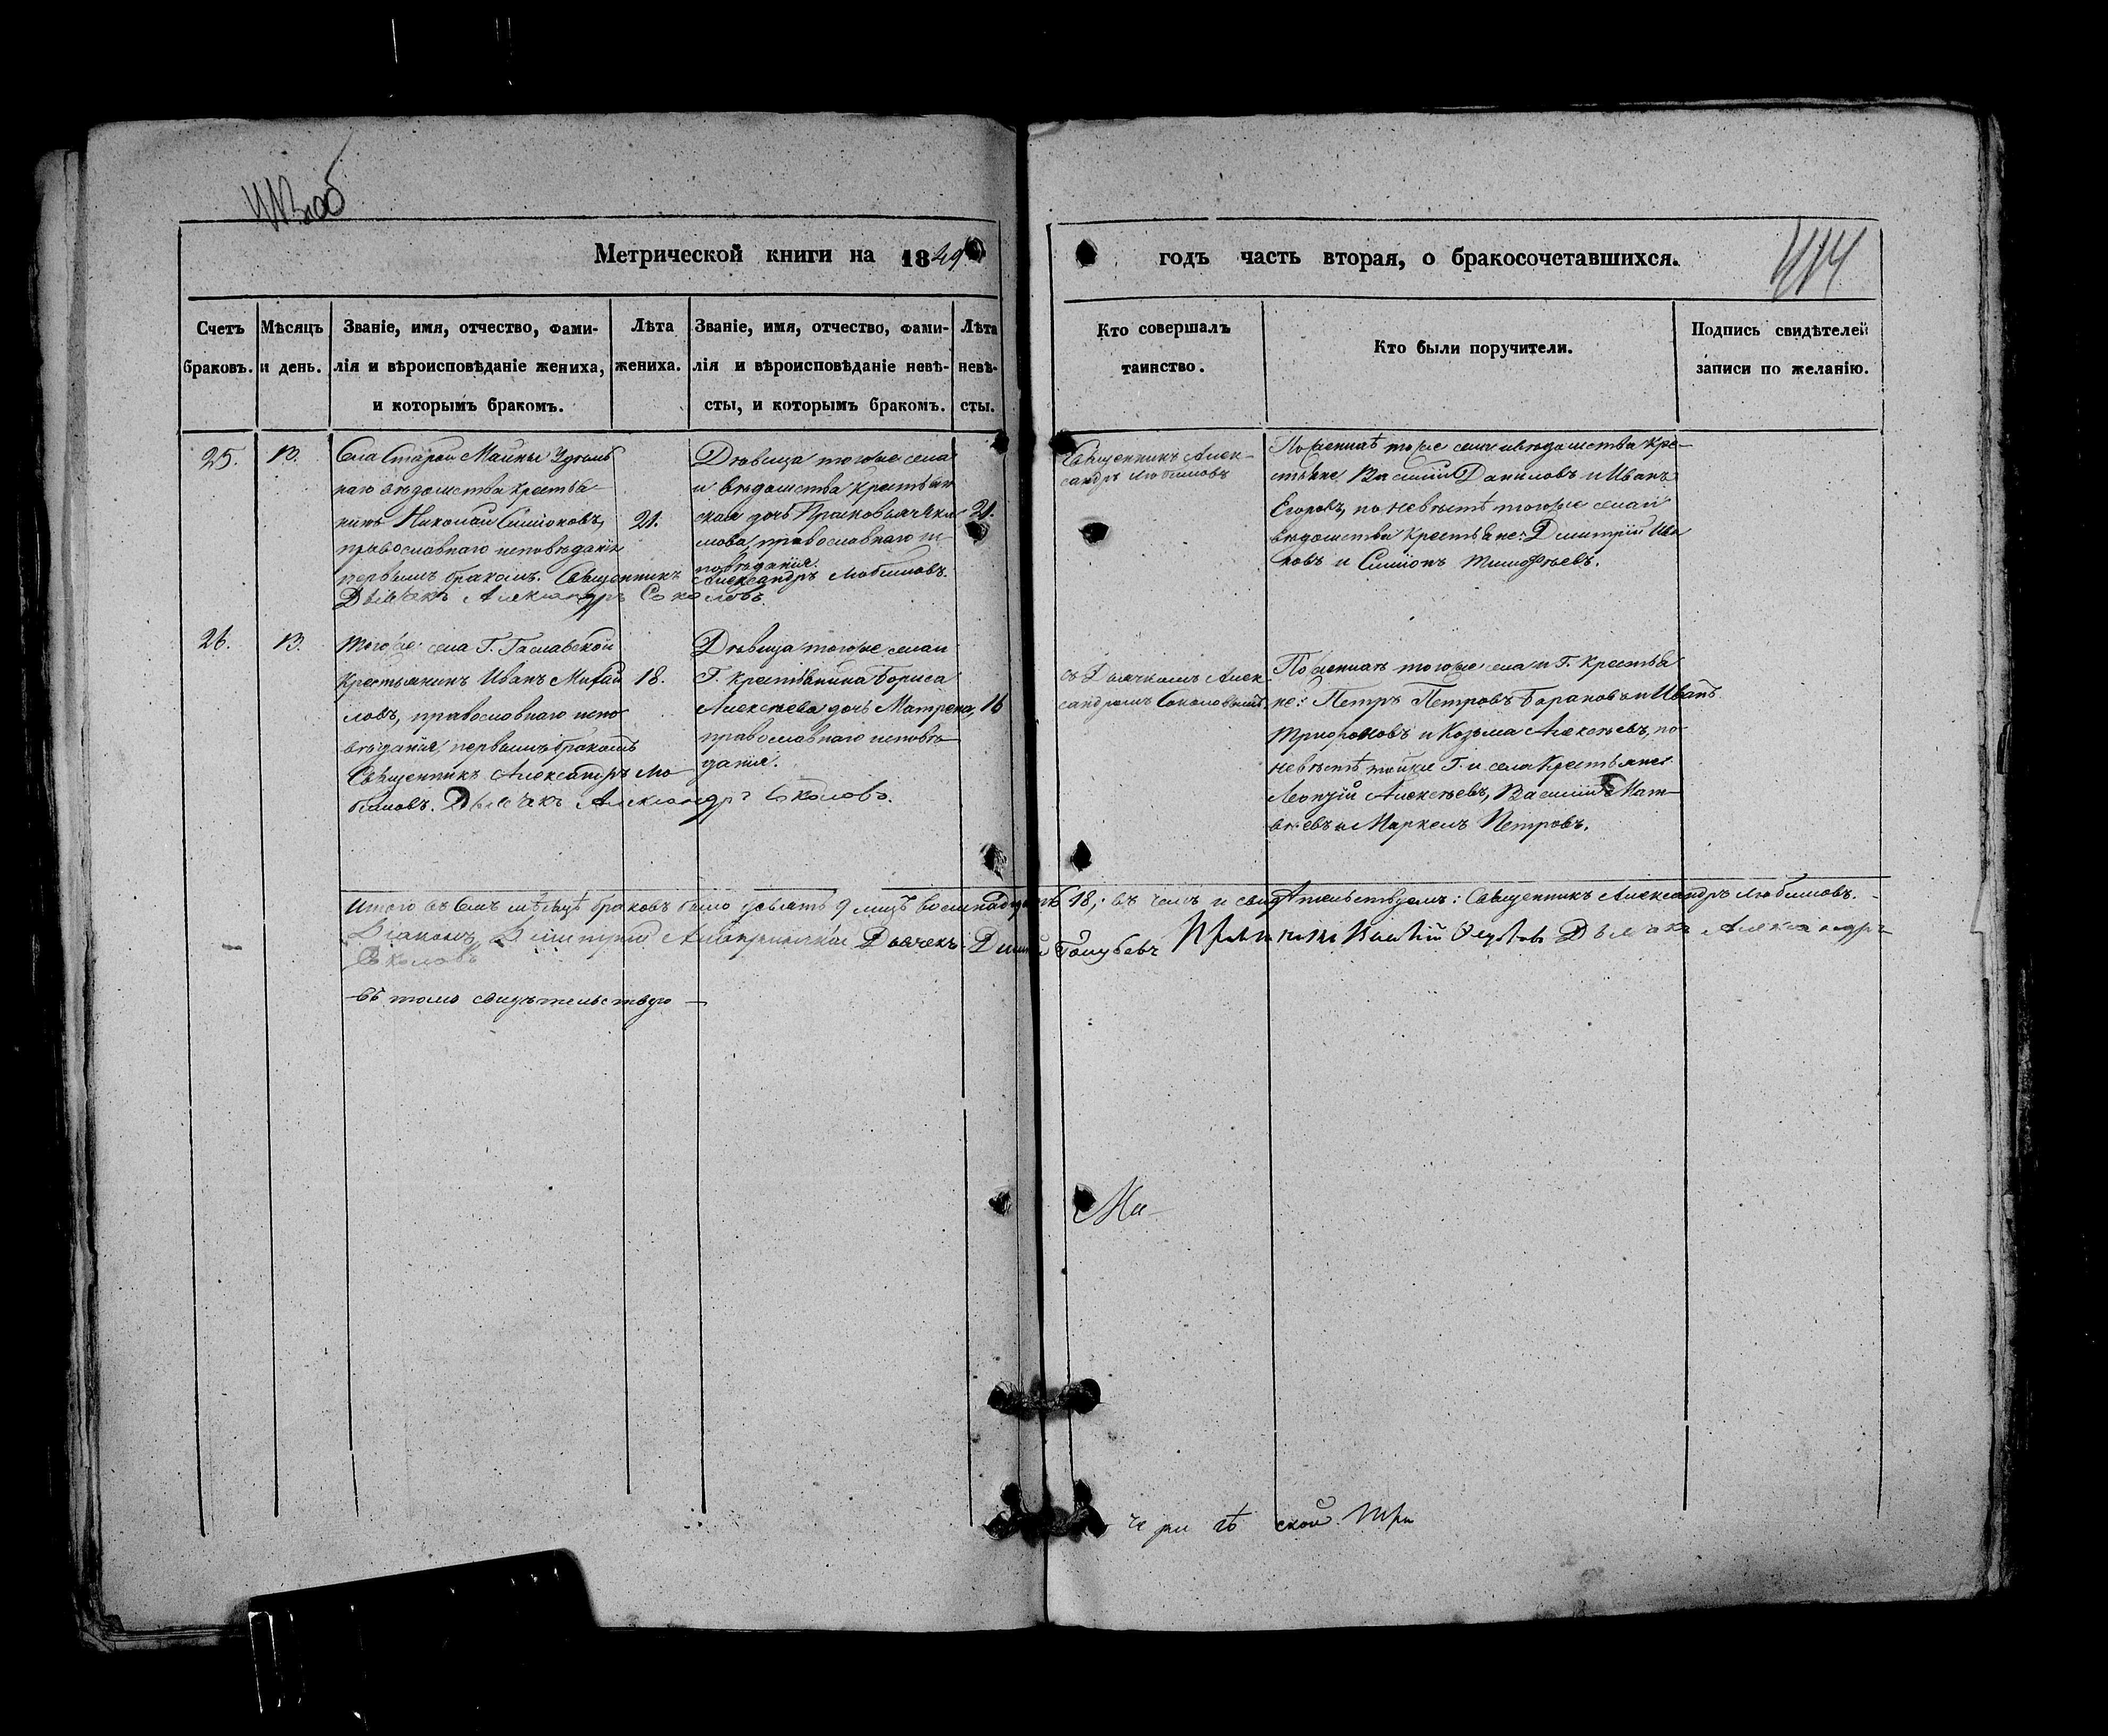 413 об
Метрической книги на 1849
годъ часть вторая, о бракосочетавшихся.
414
Счетъ браковъ.
Мѣсяцъ и день.
Званіе, имя, отчество, фами-
лія и вѣроисповѣданіе жениха,
и которымъ бракомъ.
Лѣта
жениха.
Званіе, имя, отчество, фами-
лія и вѣроисповѣданіе невѣ-
сты, и которымъ бракомъ.
Лѣта
невѣ-
сты.
Кто совершалъ
таинство.
Кто были поручители.
Подпись свидѣтелей
записи по желанію.
25.
13.
Села Старой Майны Удѣль
наго вѣдомства крестья-
нинъ Николай Симіоновъ,
православнаго исповѣданія
первымъ бракомъ. Священникъ
Дьячекъ Александръ Соколовъ.
21.
Дѣвица тогоже села
и вѣдомства крестьян
ская дочь Прасковья
православнаго ис-
повѣданія.
Александръ Любимовъ.
21.
Священникъ Алек-
сандръ Любимовъ
По женихѣ тогоже села и вѣдомства кре-
стьяне, Василій Даниловъ и Иванъ
Егоровъ, по невѣстѣ тогоже села и
вѣдомства крестьяне: Димитрій Ива
новъ и Симіонъ Тимофѣевъ.
26.
13.
Тогоже села Г.
Крестьянинъ Иванъ Михай
ловъ, православнаго испо
вѣданія, первымъ бракомъ
Священникъ Александръ Лю
бимовъ. Дьячекъ Александръ Соколовъ.
18.
Дѣвица тогоже села и
Г. крестьянина Бориса
Алексѣева дочь Матрена,
православнаго исповѣ
данія.
16
съ Дьячкомъ Алек
сандромъ Соколовымъ
По женихѣ тогоже села и Г. Крестья
не: Петръ Петровъ Барановъ и Иванъ
Трифоновъ и Козьма Алексѣевъ, по
невѣстѣ тойже Г. и села Крестьяне:
Алексѣевъ, Василій Мат-
вѣевъ и Маркелъ Петровъ.
Итого въ семъ мѣсяцѣ браковъ было девять 9 лицъ восемнадцать 18; въ чемъ и свидѣтельствуемъ: Священникъ Александръ Любимовъ.
Діаконъ Димитрій Дьячекъ Голубевъ Дьячекъ Александръ
Соколовъ
въ томъ свидѣтельствую
Ма-
ской